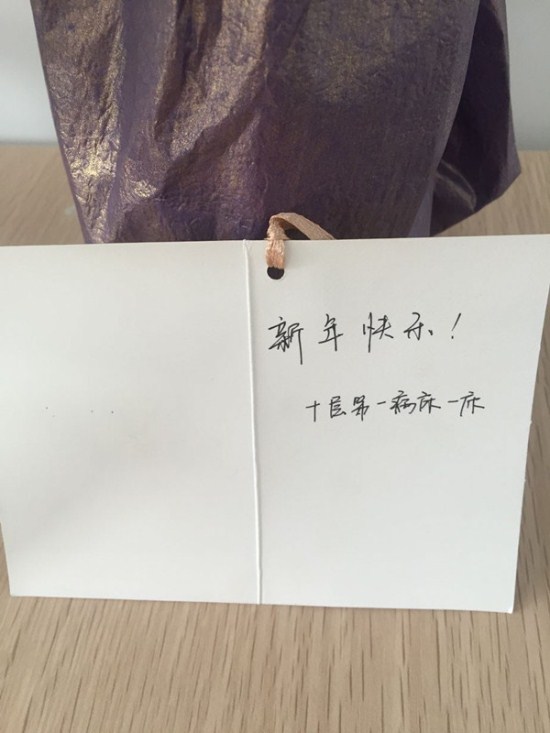 新年快乐！
十层第一病床一床